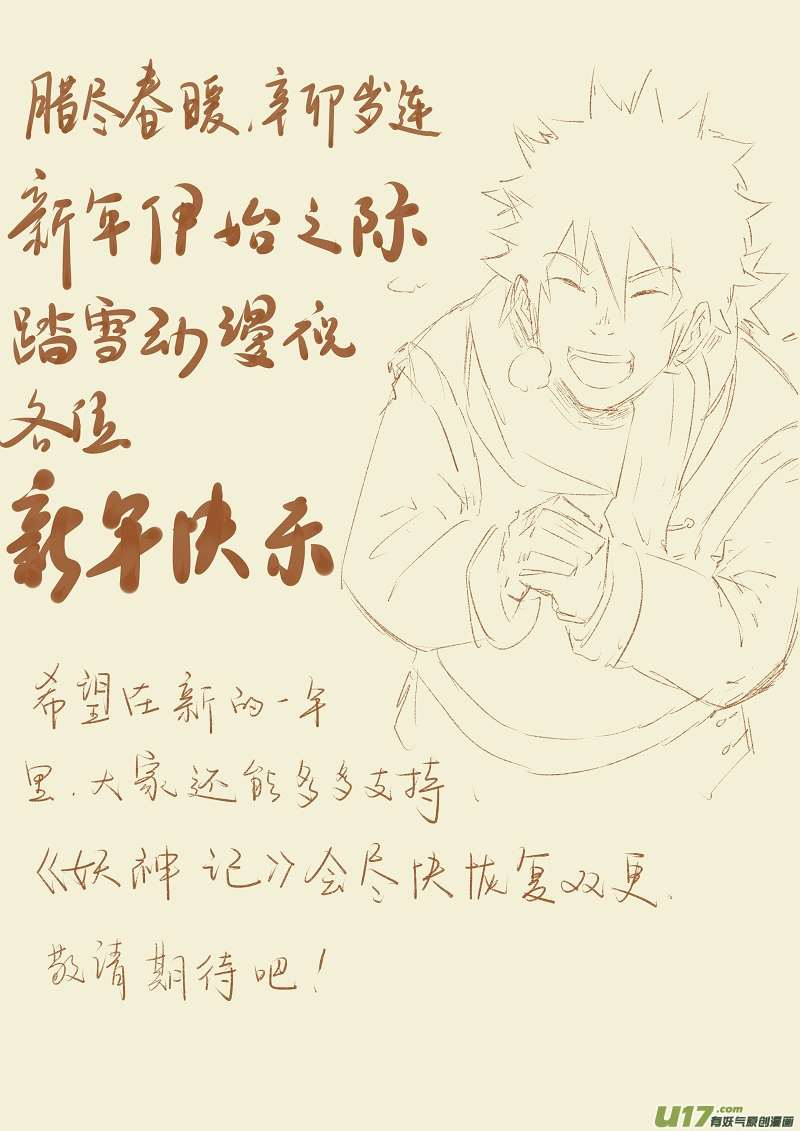 腊尽春暖,辛卯岁连
新年伊始之际
踏雪动漫祝
各位
新年快乐
希望在新的一年
里,大家还能多多支持
《妖神记》会尽快恢复双更.
敬请期待吧!
U17.com
有妖气原创漫画